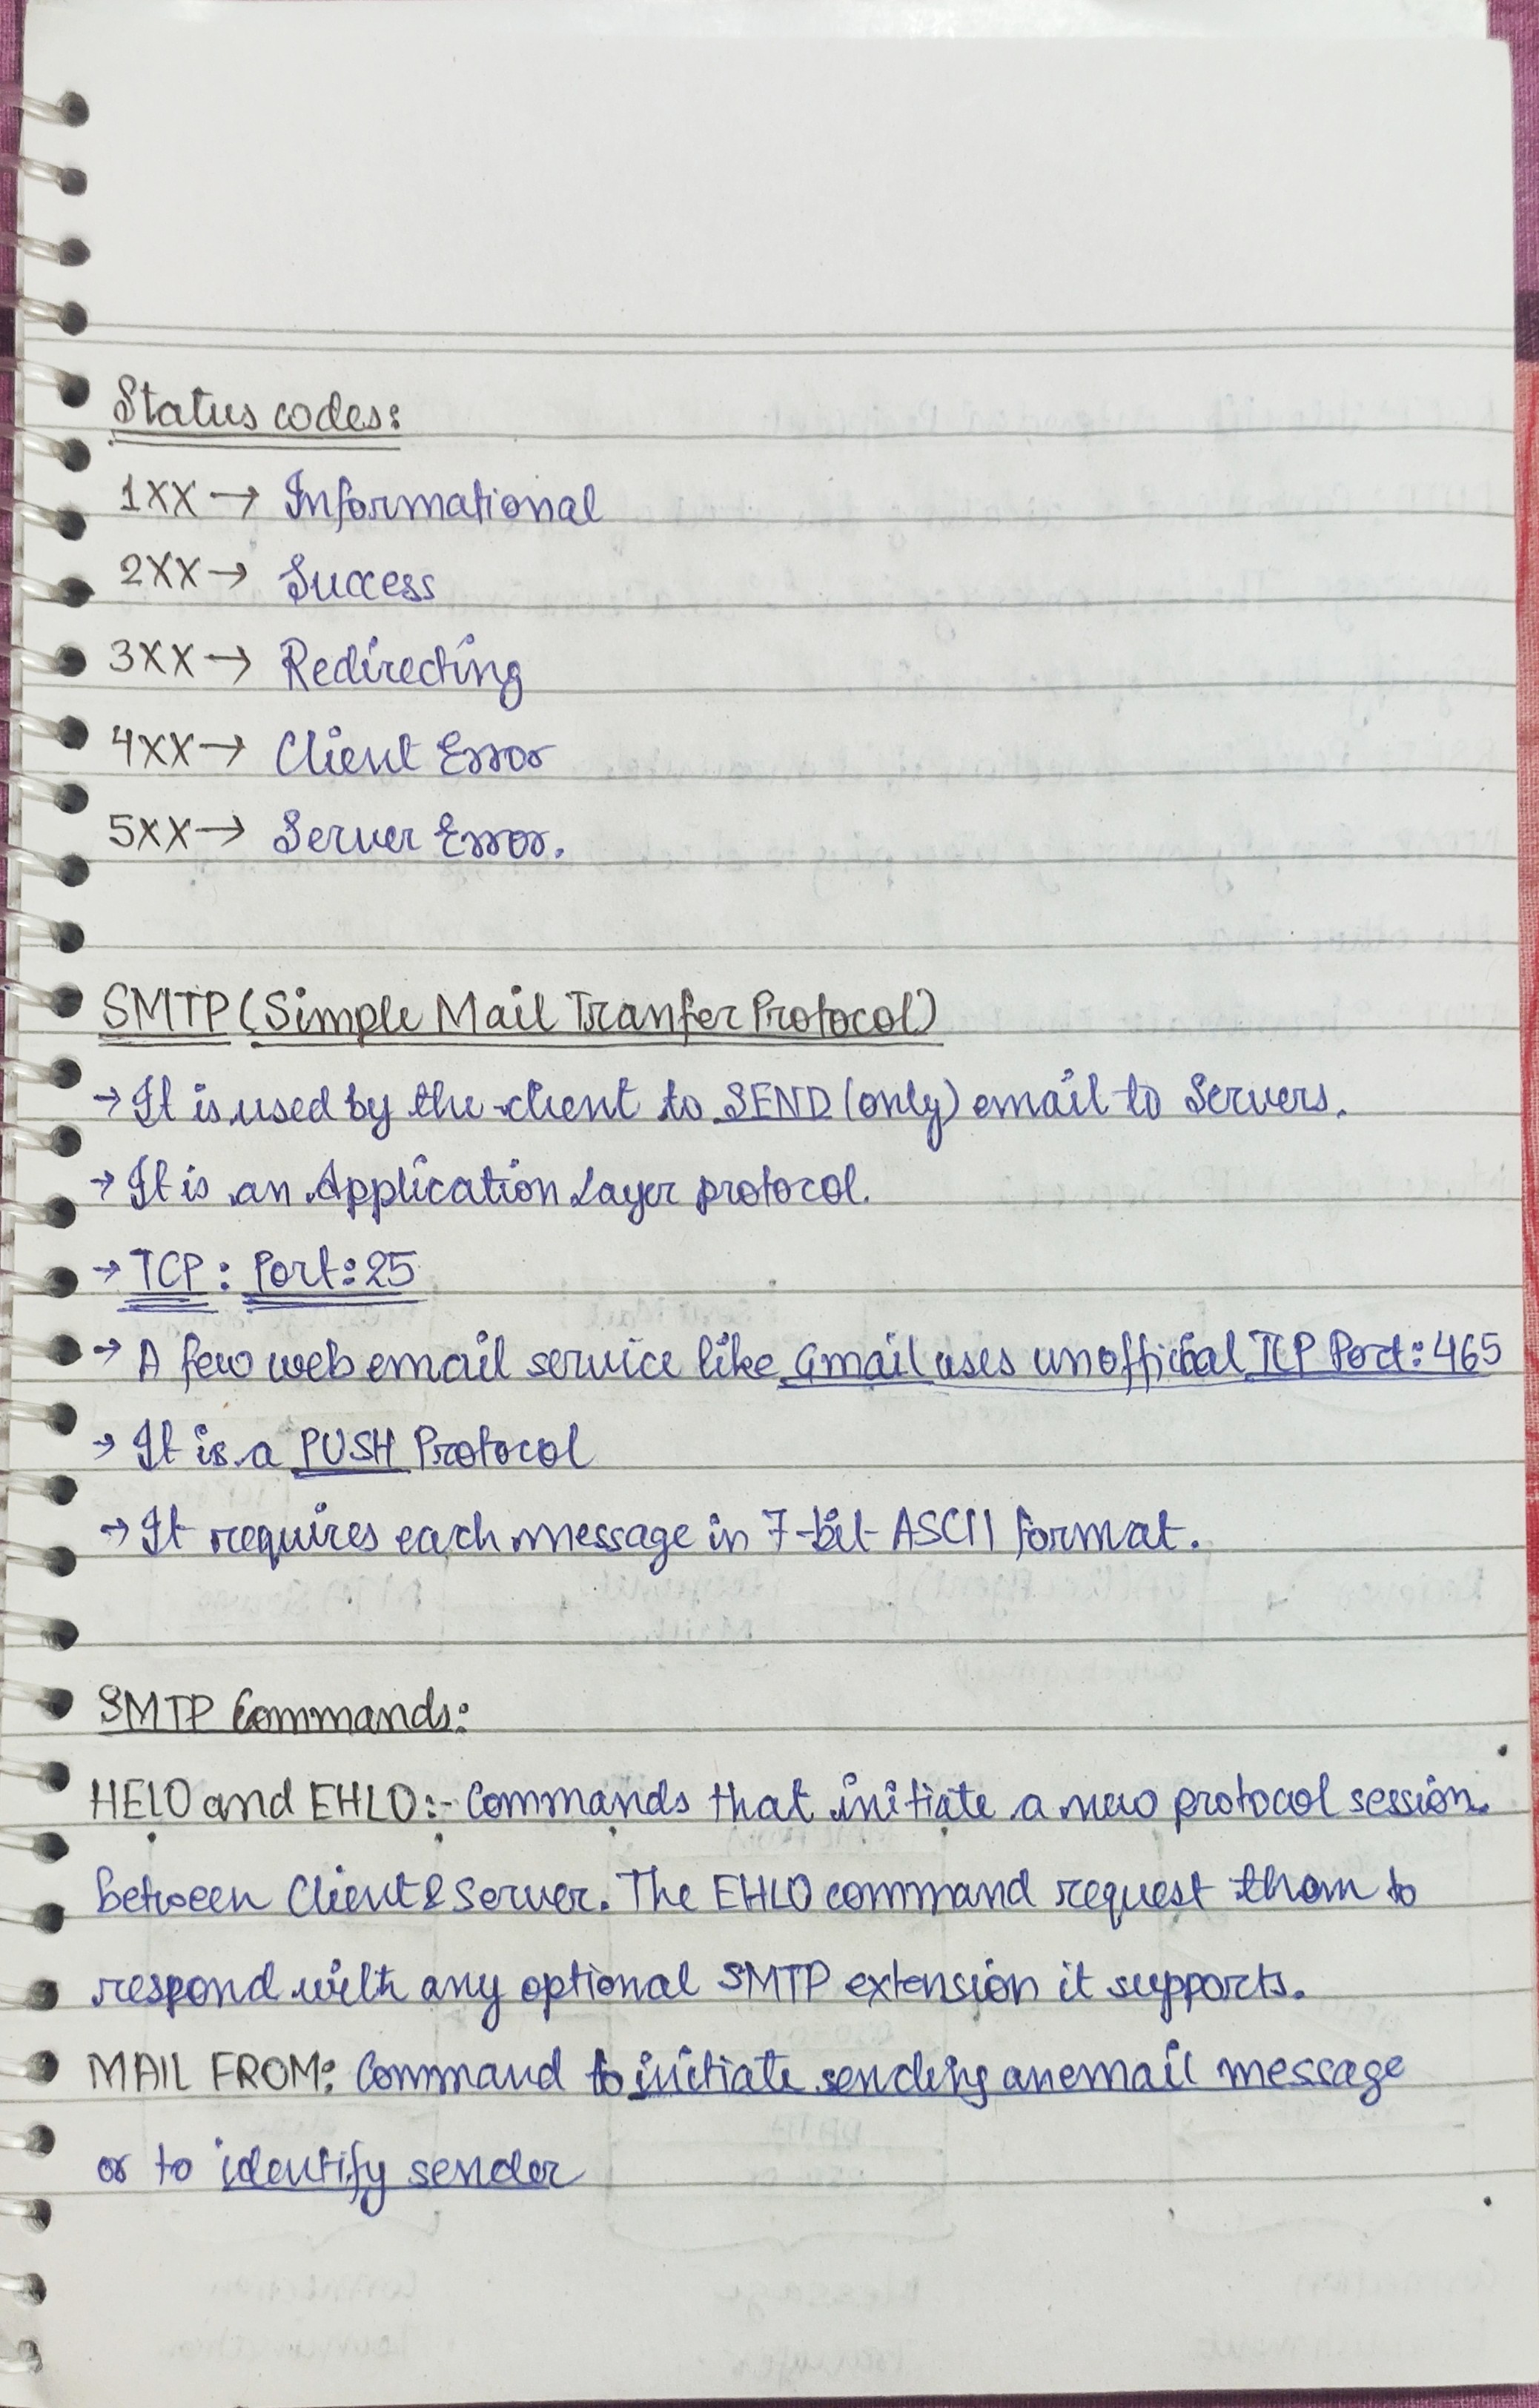 Status codes:
1XX → Informational
2XX → Success
3XX → Redirecting
4XX → Client Error
5XX → Server Error.
SMTP (Simple Mail Tranfer Protocol)
→ It is used by the client to SEND (only) email to Servers.
→ It is an Application Layer protocol.
→ TCP: Port: 25
→ A few web email service like Gmail uses unofficial TCP Port: 465
→ It is a PUSH Protocol
→ It requires each message in 7-bit ASCII format.
SMTP Commands:
HELO and EHLO:- Commands that initiate a new protocol session
between Client & Server. The EHLO command request them to
respond with any optional SMTP extension it supports.
MAIL FROM: Command to initiate sending an email message
or to identify sender